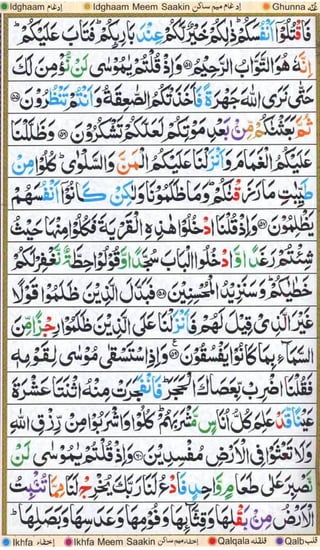 Idghaam ادغام Idghaam Meem Saakin ادغام میم ساکن Ghunna غنّہ
فَاقْتُلُوْٓا اَنْفُسَكُمْ ذٰلِكُمْ خَيْرٌ لَّكُمْ عِنْدَ بَارِئِكُمْ فَتَابَ عَلَيْكُمْ
اِنَّهٗ هُوَ التَّوَّابُ الرَّحِيْمُ ۝۵۴ وَاِذْ قُلْتُمْ يٰمُوْسٰى لَنْ نُّؤْمِنَ لَكَ
حَتّٰى نَرَى اللّٰهَ جَهْرَةً فَاَخَذَتْكُمُ الصّٰعِقَةُ وَاَنْتُمْ تَنْظُرُوْنَ ۝۵۵
ثُمَّ بَعَثْنٰكُمْ مِّنْۢ بَعْدِ مَوْتِكُمْ لَعَلَّكُمْ تَشْكُرُوْنَ ۝۵۶ وَظَلَّلْنَا
عَلَيْكُمُ الْغَمَامَ وَاَنْزَلْنَا عَلَيْكُمُ الْمَنَّ وَالسَّلْوٰى ؕ كُلُوْا مِنْ
طَيِّبٰتِ مَا رَزَقْنٰكُمْ ؕ وَمَا ظَلَمُوْنَا وَلٰكِنْ كَانُوْٓا اَنْفُسَهُمْ
يَظْلِمُوْنَ ۝۵۷ وَاِذْ قُلْنَا ادْخُلُوْا هٰذِهِ الْقَرْيَةَ فَكُلُوْا مِنْهَا حَيْثُ
شِئْتُمْ رَغَدًا وَّادْخُلُوا الْبَابَ سُجَّدًا وَّقُوْلُوْا حِطَّةٌ نَّغْفِرْ لَكُمْ
خَطٰيٰكُمْ ؕ وَسَنَزِيْدُ الْمُحْسِنِيْنَ ۝۵۸ فَبَدَّلَ الَّذِيْنَ ظَلَمُوْا قَوْلًا
غَيْرَ الَّذِيْ قِيْلَ لَهُمْ فَاَنْزَلْنَا عَلَى الَّذِيْنَ ظَلَمُوْا رِجْزًا مِّنَ
السَّمَآءِ بِمَا كَانُوْا يَفْسُقُوْنَ ۝۵۹ وَاِذِ اسْتَسْقٰى مُوْسٰى لِقَوْمِهٖ
فَقُلْنَا اضْرِبْ بِّعَصَاكَ الْحَجَرَ ؕ فَانْفَجَرَتْ مِنْهُ اثْنَتَا عَشْرَةَ
عَيْنًا ؕ قَدْ عَلِمَ كُلُّ اُنَاسٍ مَّشْرَبَهُمْ ؕ كُلُوْا وَاشْرَبُوْا مِنْ رِّزْقِ اللّٰهِ
وَلَا تَعْثَوْا فِى الْاَرْضِ مُفْسِدِيْنَ ۝۶۰ وَاِذْ قُلْتُمْ يٰمُوْسٰى لَنْ
نَّصْبِرَ عَلٰى طَعَامٍ وَّاحِدٍ فَادْعُ لَنَا رَبَّكَ يُخْرِجْ لَنَا مِمَّا تُنْۢبِتُ
الْاَرْضُ مِنْۢ بَقْلِهَا وَقِثَّآئِهَا وَفُوْمِهَا وَعَدَسِهَا وَبَصَلِهَا ؕ
Ikhfa إخفاء Ikhfa Meem Saakin إخفاء میم ساکن Qalqala قلقلہ Qalb قلب